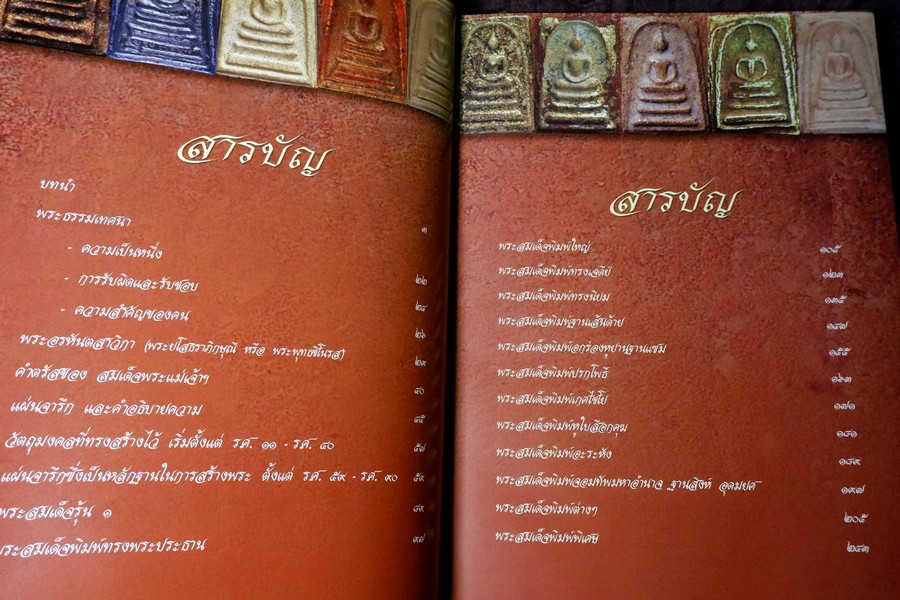 สารบัญ
บทนำ
พระธรรมเทศนา ๓
- ความเป็นหนึ่ง
- การรับผิดและรับชอบ ๒๒
- ความสำคัญของคน ๒๔
พระอรหันตสาวิกา (พระยโสธราภิกษุณี หรือ พระพุทธชิโนรส) ๒๖
คำตรัสของ สมเด็จพระแม่เจ้าฯ ๒๙
แผ่นจารึก และคำอธิบายความ ๔๐
วัตถุมงคลที่ทรงสร้างไว้ เริ่มตั้งแต่ รศ. ๑๑ - รศ. ๔๐ ๔๕
แผ่นจารึกซึ่งเป็นหลักฐานในการสร้างพระ ตั้งแต่ รศ. ๕๙ - รศ. ๙๐ ๕๗
พระสมเด็จรุ่น ๑ ๕๙
พระสมเด็จพิมพ์ทรงพระประธาน ๘๙
๙๗
สารบัญ
พระสมเด็จพิมพ์ใหญ่ ๑๐๕
พระสมเด็จพิมพ์ทรงเจดีย์ ๑๒๓
พระสมเด็จพิมพ์ทรงนิยม ๑๓๕
พระสมเด็จพิมพ์ฐานเส้นด้าย ๑๔๗
พระสมเด็จพิมพ์อกร่องหูยานฐานแซม ๑๕๕
พระสมเด็จพิมพ์ปรกโพธิ์ ๑๖๓
พระสมเด็จพิมพ์เกศไชโย ๑๗๑
พระสมเด็จพิมพ์หูใบสือกคุม ๑๘๑
พระสมเด็จพิมพ์อะระหัง ๑๘๙
พระสมเด็จพิมพ์จอมทัพมหาอำนาจ ฐานสิงห์ อุดมยศ ๑๙๗
พระสมเด็จพิมพ์ต่างๆ ๒๐๕
พระสมเด็จพิมพ์พิเศษ ๒๔๓